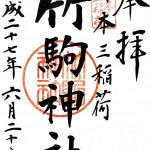 奉拝
日本三稲荷
竹駒神社
平成二十七年六月二十